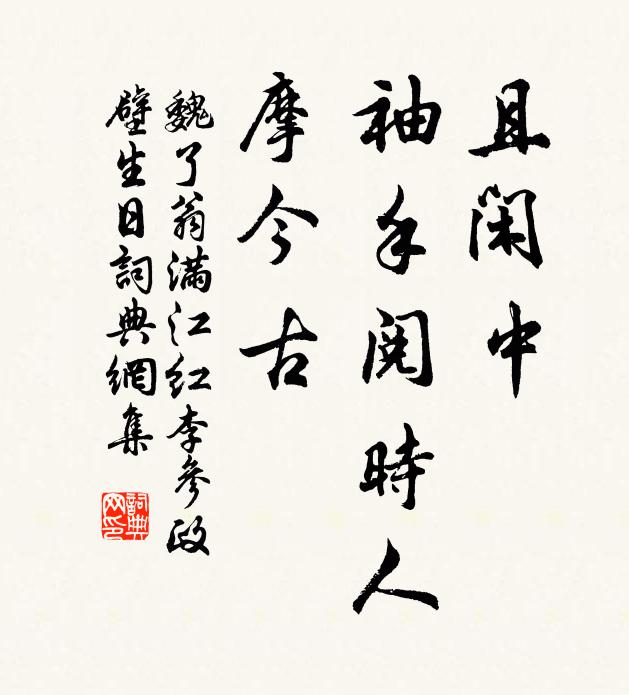 且閑中
袖手閱時人
摩今古
魏了翁滿江紅李參政
壁生日詞典網集
詞典
网印